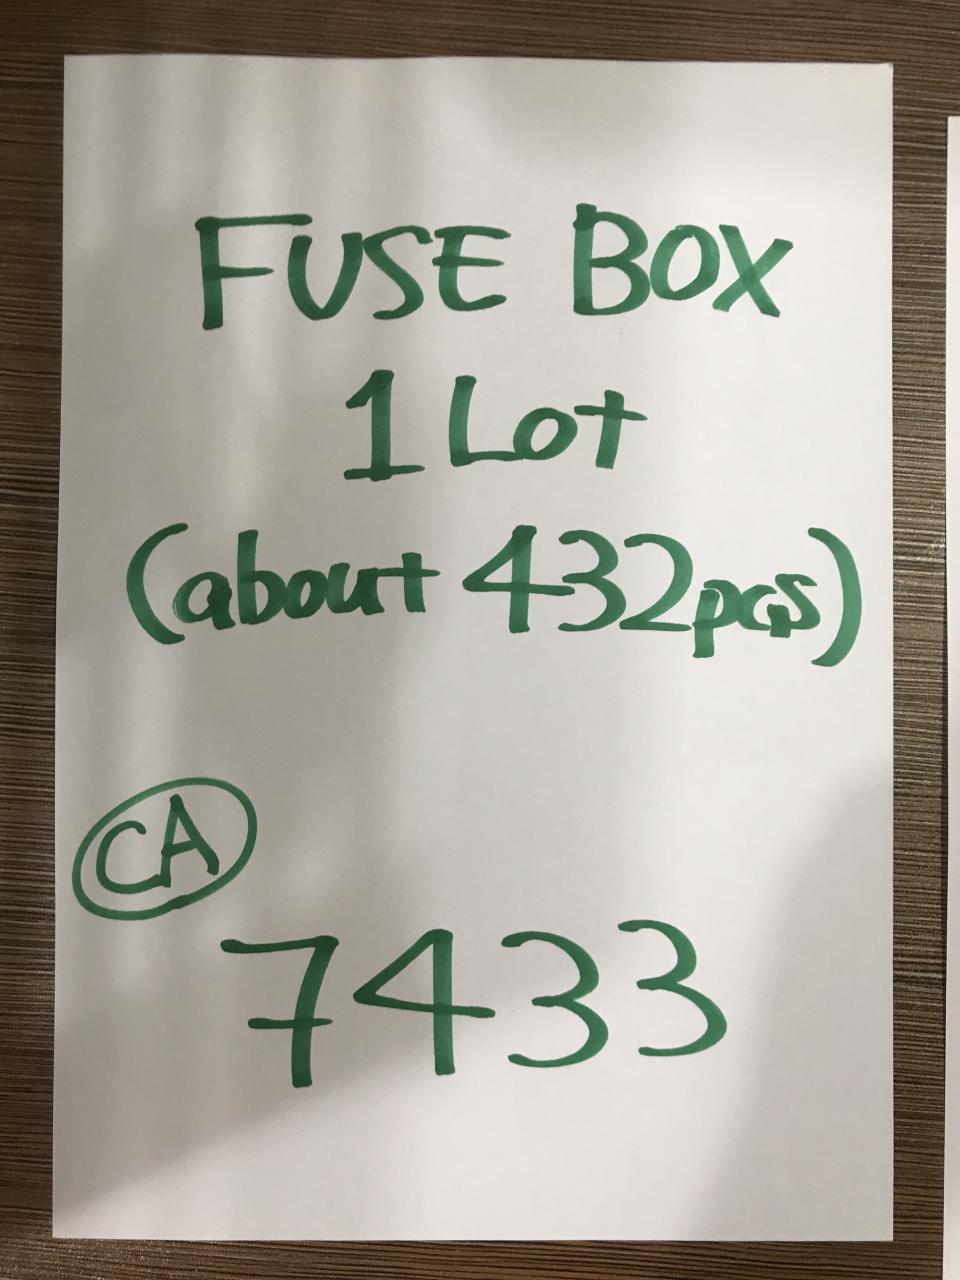 FUSE BOX
1 Lot
(about 432pcs)
CA
7433